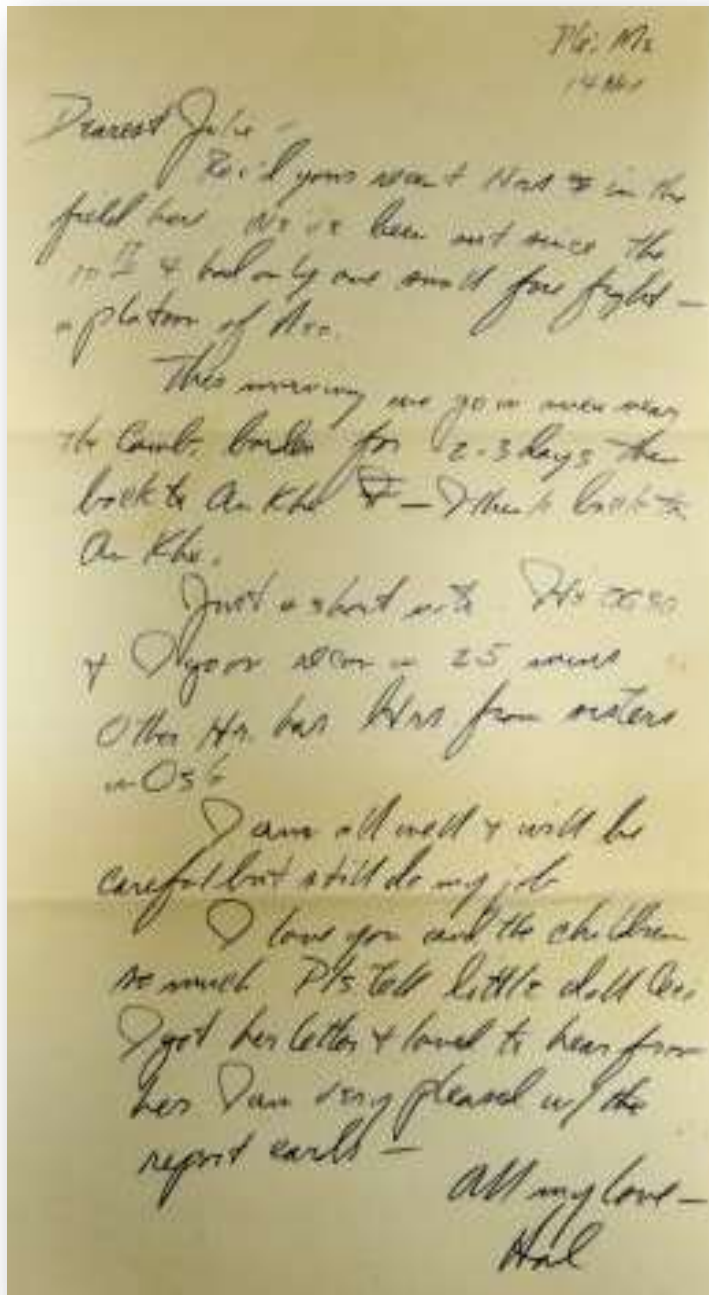 Plei Me
14 Nov
Dearest Julie -
Rec'd your recent ltrs in the
field here. We've been out since the
& had only one small fire fight -
a platoon of
This morning we go in area near
the Camb. border for 2-3 days then
back to An Khe - I think back to
An Khe.
Just a short note. It's
& I go on recon in 25 mins
Other
in
I am all well & will be
careful but still do my job
I love you and the children
so much Pls tell little doll Ceci
I got her letter & loved to hear from
her I am very pleased w/ the
report cards -
All my love -
Hal